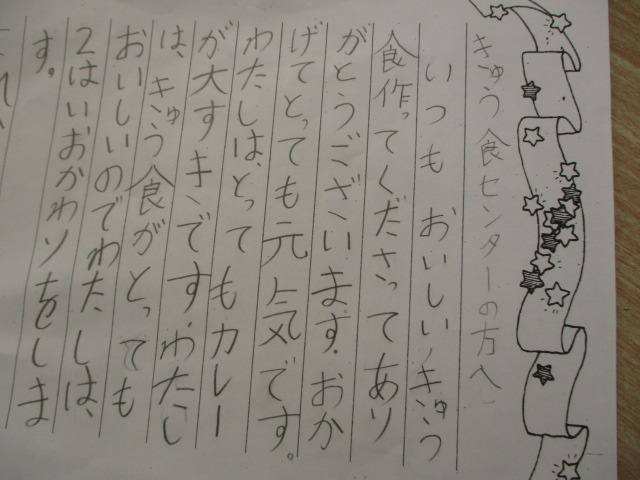 きゅう食センターの方へ
いつもおいしいきゅう
食作ってくださってあり
がとうございます。おか
げてとっても元気です。
わたしは、とってもカレー
が大すきです。わたし
は、きゅう食がとっても
おいしいのでわたしは、
2はいおかわりをしま
す。